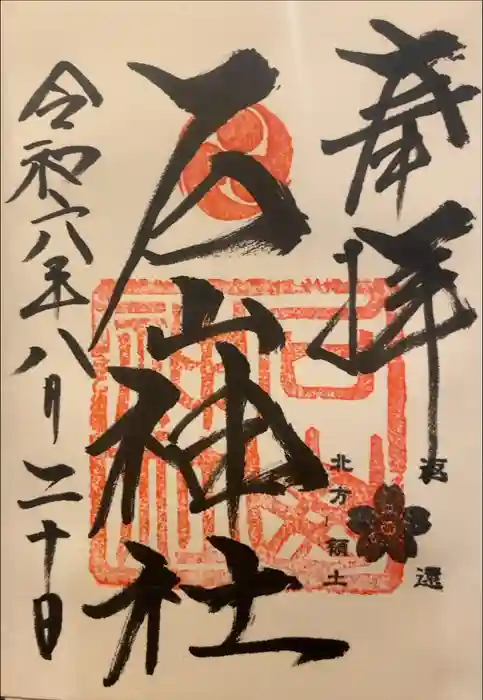 奉拝
返還
北方領土
石山神社
令和六年八月二十日